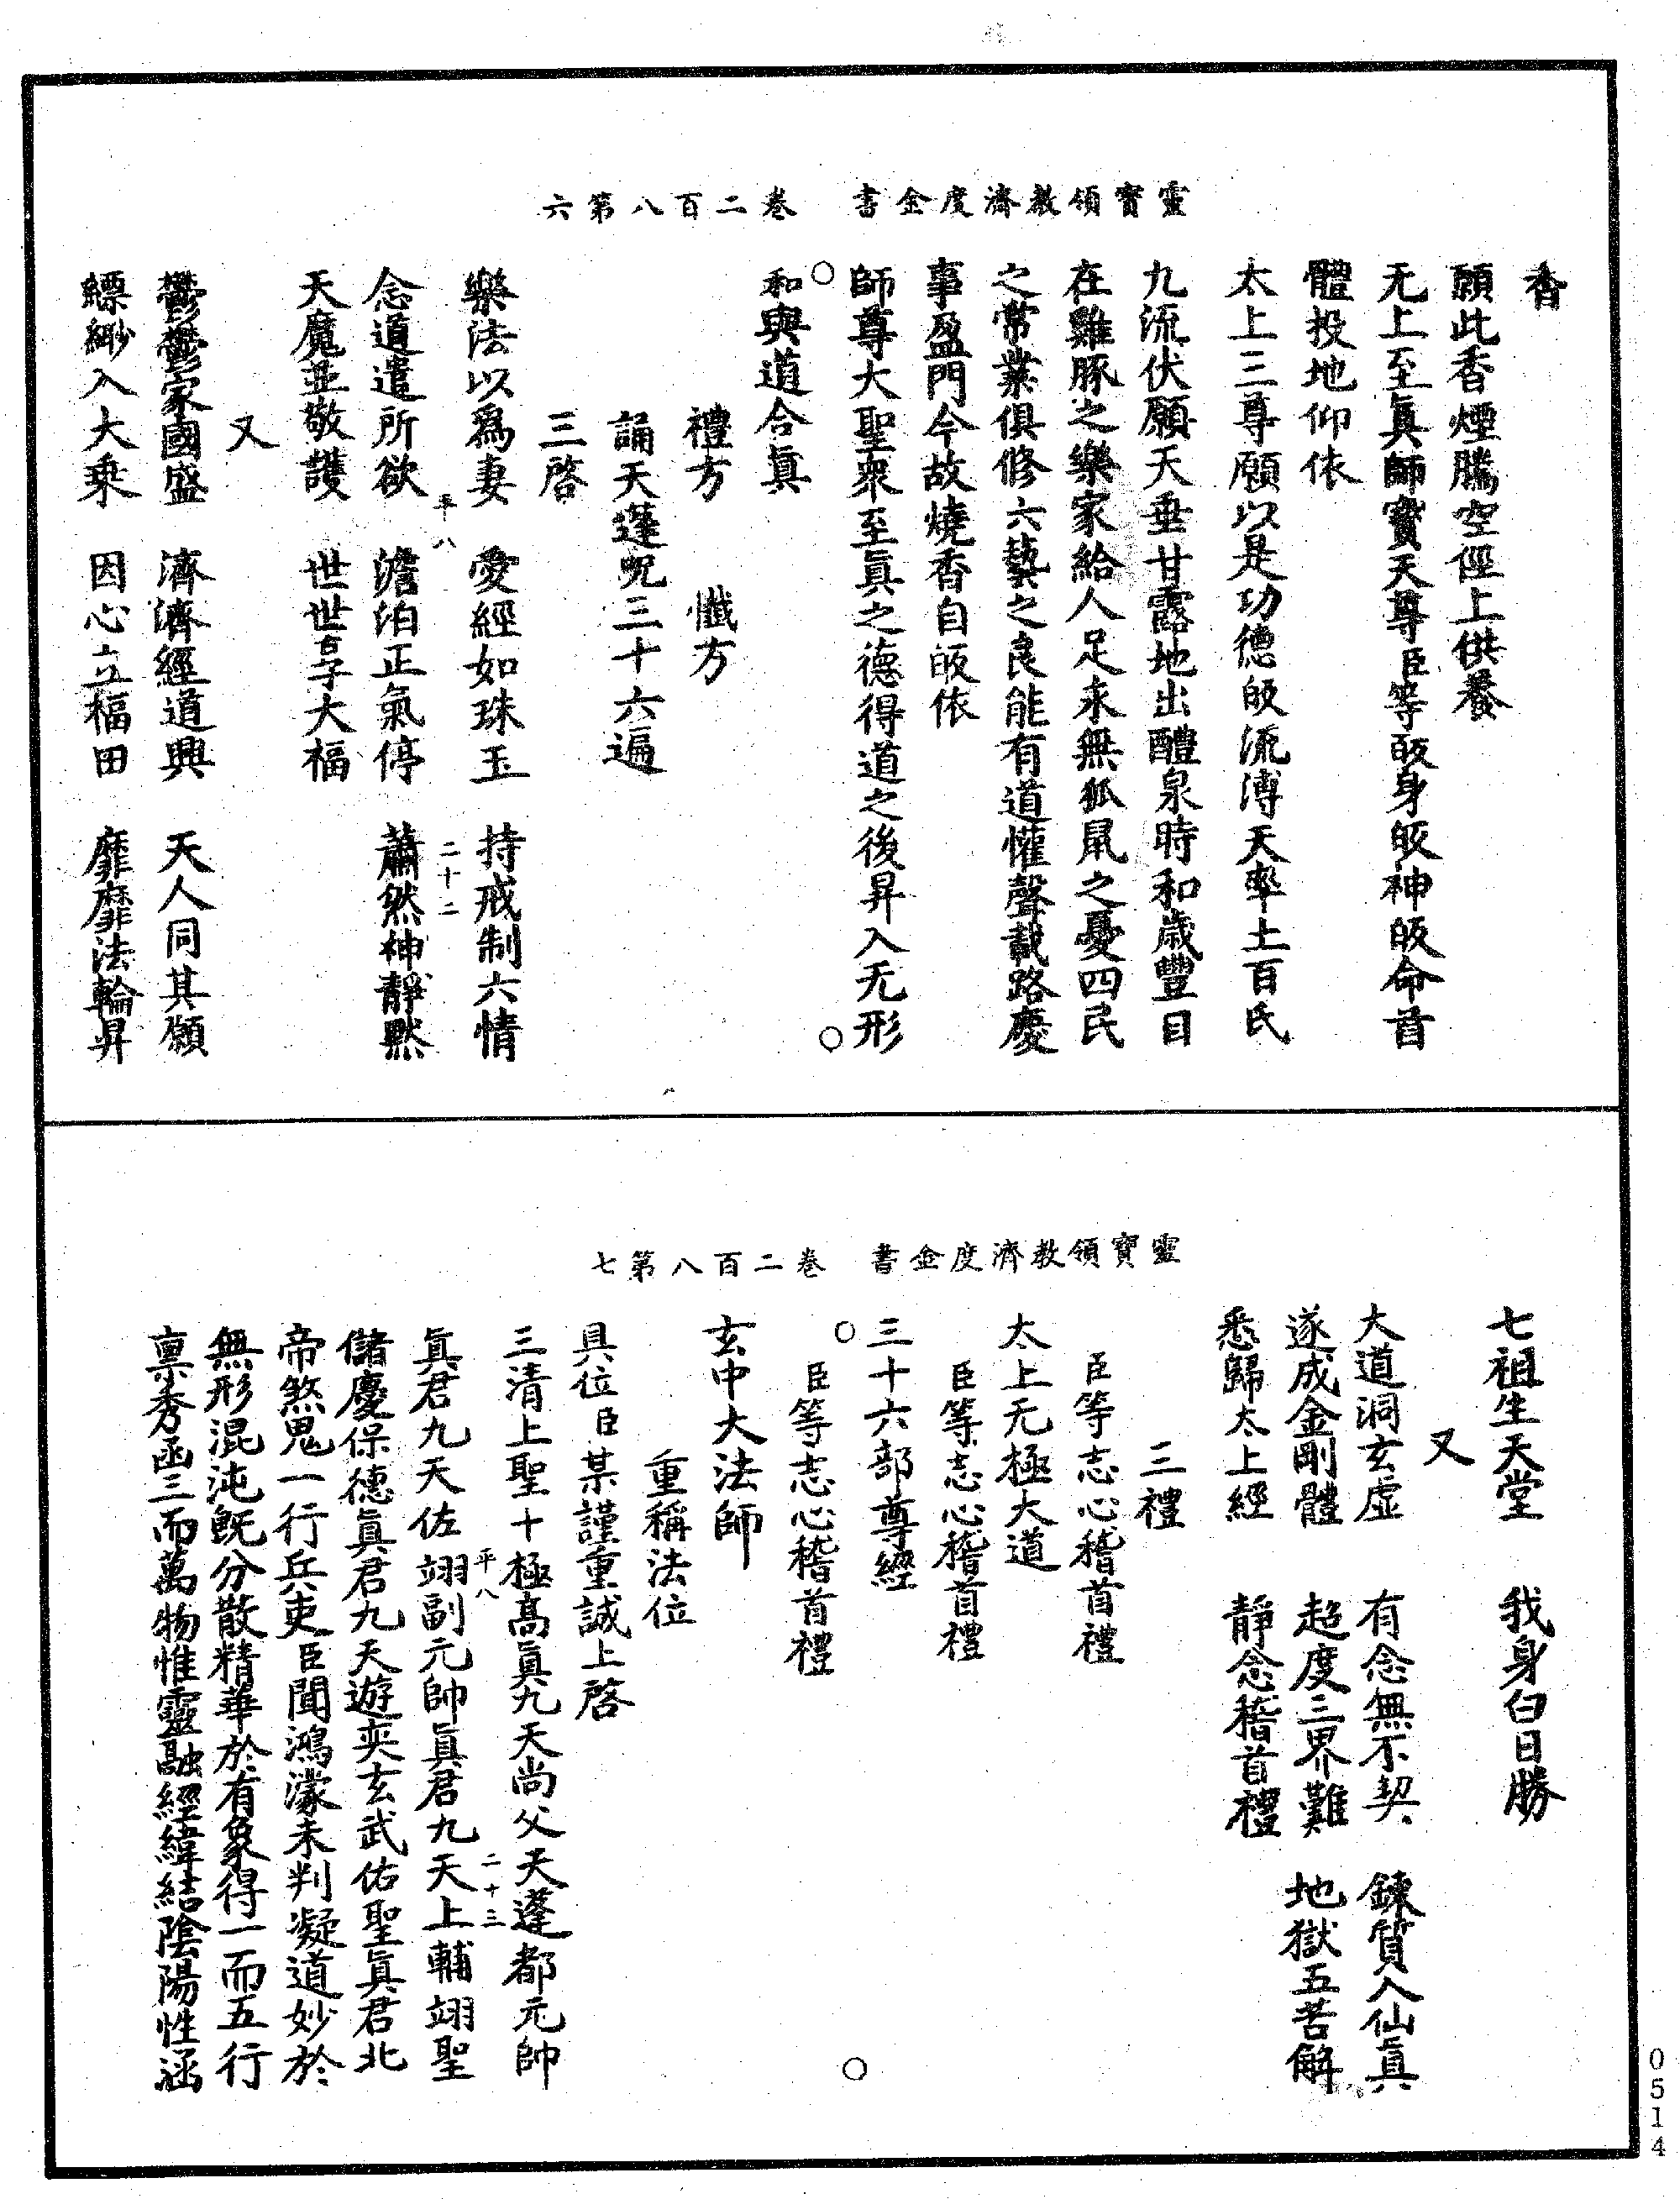 靈寶領教濟度金書　卷二百八第六
香
願此香煙騰空徑上供養
无上至眞師寶天尊臣等皈身皈神皈命首
體投地仰依
太上三尊願以是功德皈流溥天率土百氏
九流伏願天垂甘露地出醴泉時和歲豐目
在雞豚之樂家給人足永無狐鼠之憂四民
之常業俱修六藝之良能有道懽聲載路慶
事盈門今故燒香自皈依
師尊大聖衆至眞之德得道之後昇入无形
和與道合眞
禮方　懺方
誦天蓬呪三十六遍
三啓
樂法以爲妻　愛經如珠玉　持戒制六情
平八　二十二
念道遣所欲　澹泊正氣停　蕭然神靜默
天魔並敬護　世世享大福
又
鬱鬱家國盛　濟濟經道興　天人同其願
縹緲入大乘　因心立福田　靡靡法輪昇
靈寶領教濟度金書　卷二百八第七
七祖生天堂　我身白日勝
又
大道洞玄虛　有念無不契　鍊質入仙眞
遂成金剛體　超度三界難　地獄五苦解
悉歸太上經　靜念稽首禮
三禮
臣等志心稽首禮
太上无極大道
臣等志心稽首禮
三十六部尊經
臣等志心稽首禮
玄中大法師
重稱法位
具位臣某謹重誠上啓
三清上聖十極高眞九天尚父天蓬都元帥
平八　二十三
眞君九天佐翊副元帥眞君九天上輔翊聖
儲慶保德眞君九天遊奕玄武佑聖眞君北
帝煞鬼一行兵吏臣聞鴻濛未判凝道妙於
無形混沌旣分散精華於有象得一而五行
禀秀函三而萬物惟靈融經緯結陰陽性涵
0514